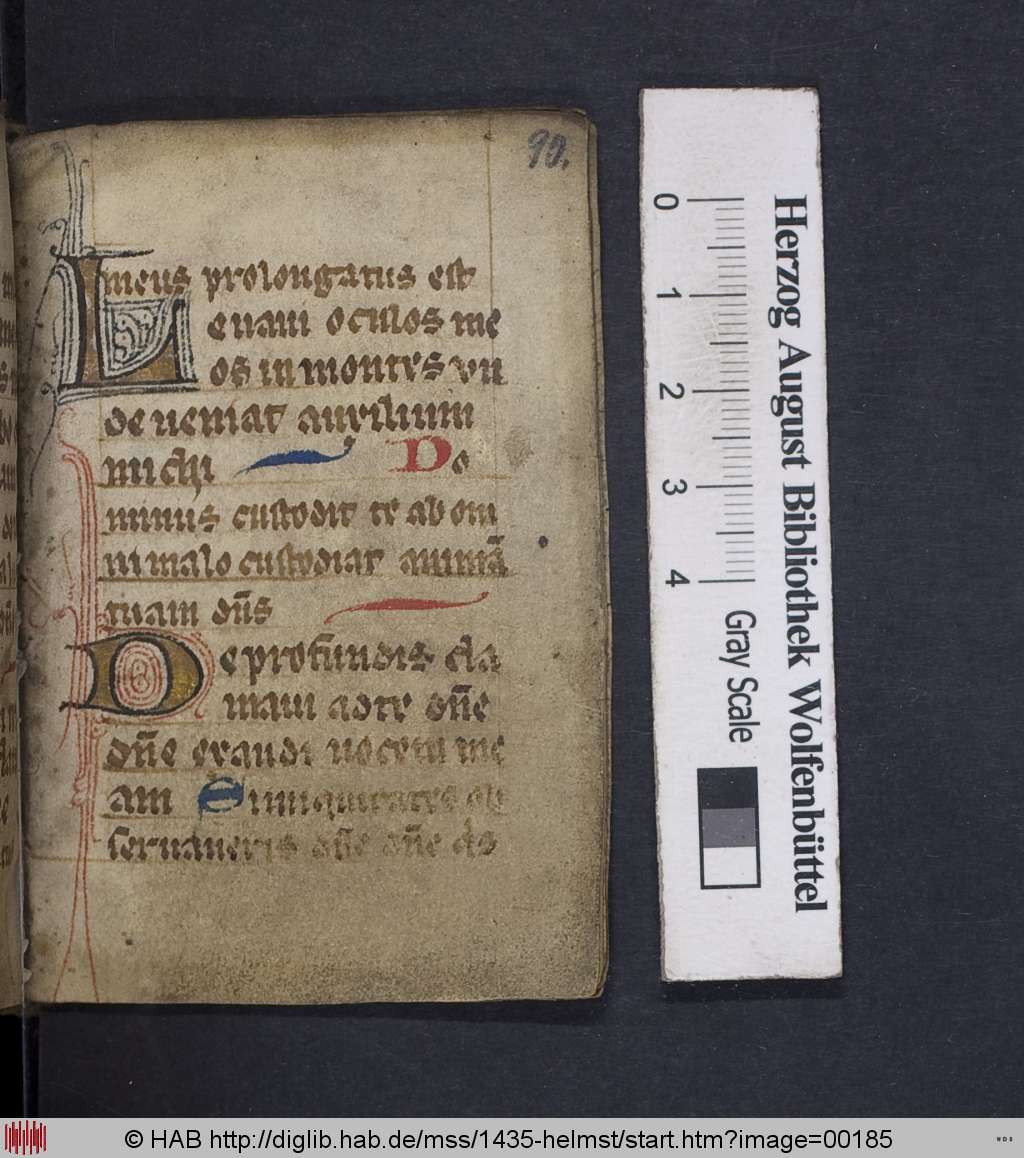 90.
meus prolongatus est
Leuaui oculos me
os in montes vn
de ueniat auxilium
michi Do
minus custodit te ab om
ni malo custodiat animā
tuam dn̄s
De profundis cla
maui ad te dn̄e
dn̄e exaudi uocem me
am Si iniquitates ob
seruaueris dn̄e dn̄e
0
1
2
3
4
Gray Scale
Herzog August Bibliothek Wolfenbüttel
© HAB http://diglib.hab.de/mss/1435-helmst/start.htm?image=00185